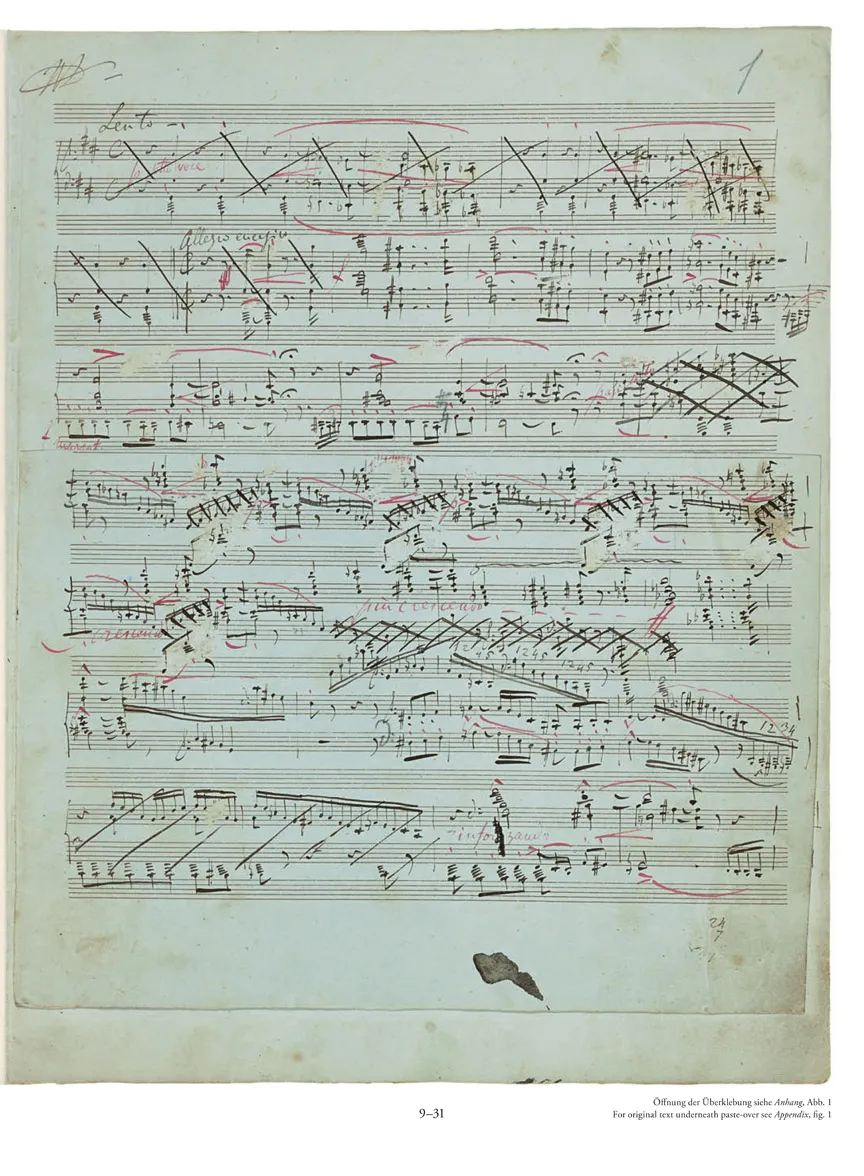 1
Lento
sotto voce
Allegro energico
marcat.
crescendo
più crescendo
1 2 4 5 1 2 4 5 1 2 4 5
1 2 3 4
rinforzando
24
7
Öffnung der Überklebung siehe Anhang, Abb. 1
9–31
For original text underneath paste-over see Appendix, fig. 1